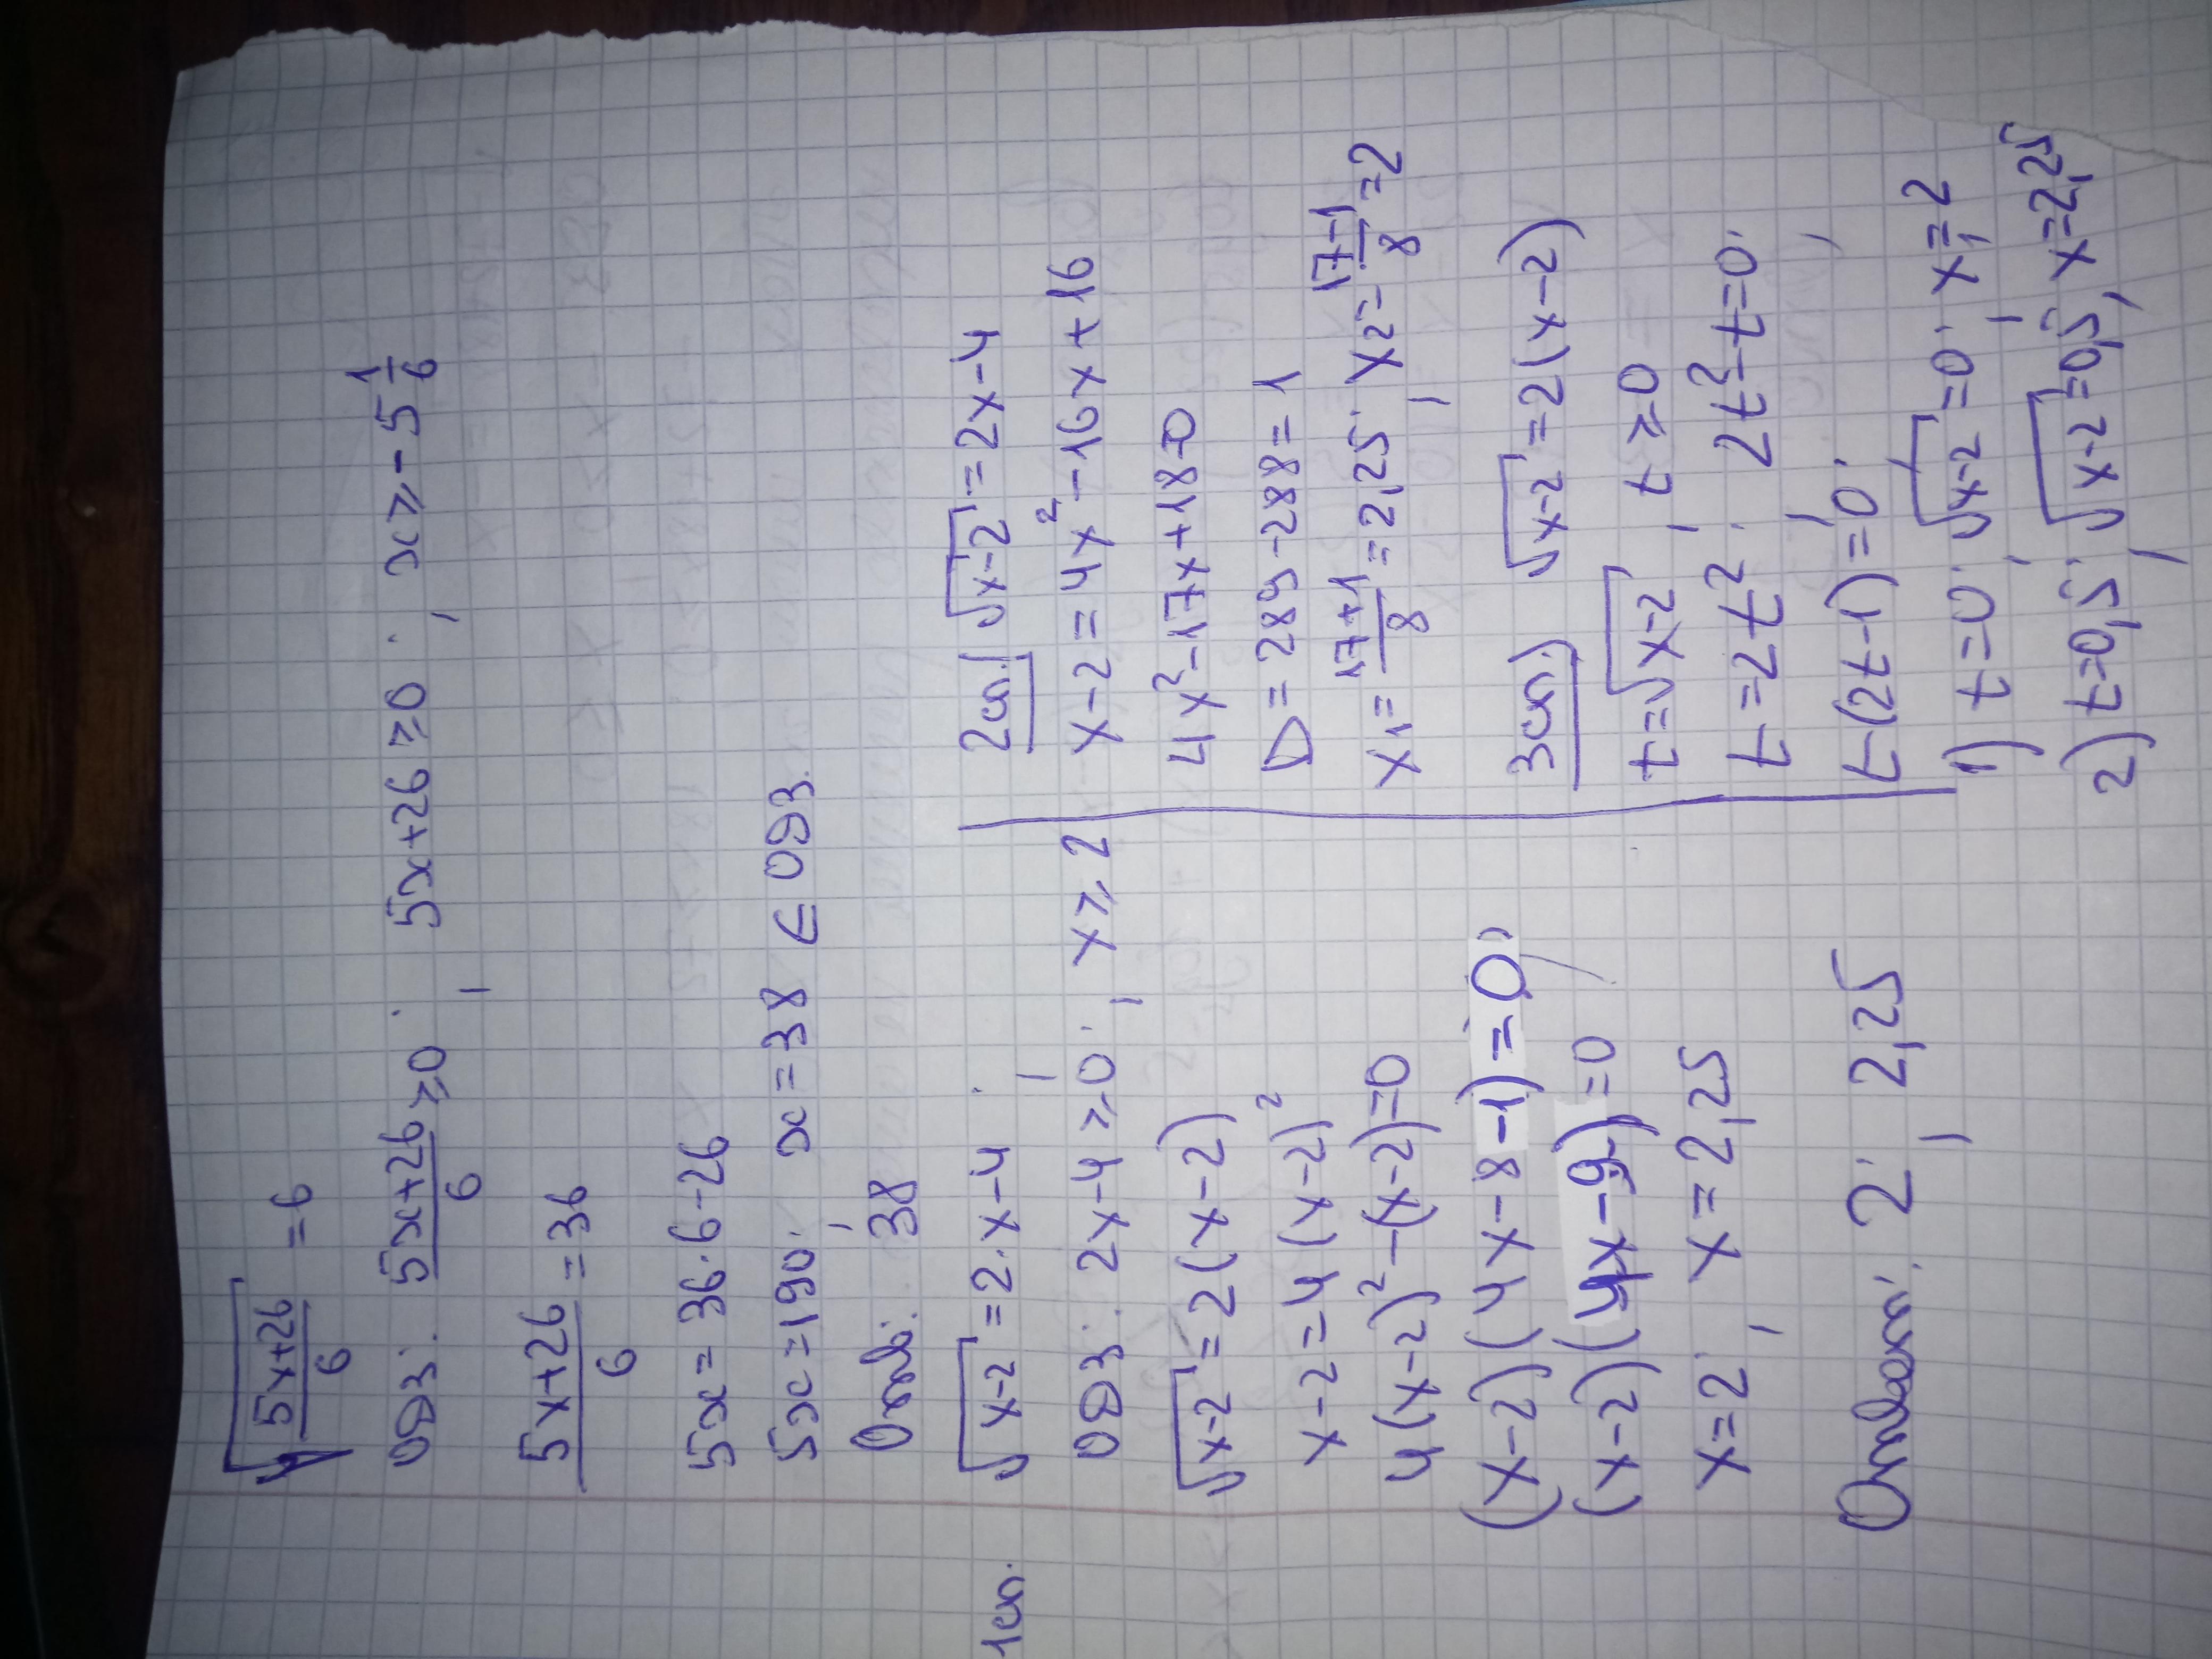 √((5x+26)/6) = 6
ОДЗ: (5x+26)/6 ≥ 0; 5x+26 ≥ 0; x ≥ -5 1/6
(5x+26)/6 = 36
5x = 36·6-26
5x = 190; x = 38 ∈ ОДЗ.
Отв: 38
1сп. √(x-2) = 2·x-4;
ОДЗ: 2x-4 ≥ 0; x ≥ 2
√(x-2) = 2(x-2)
x-2 = 4(x-2)²
4(x-2)²-(x-2)=0
(x-2)(4x-8-1)=0;
(x-2)(4x-9)=0
x=2; x=2,25
Ответ: 2; 2,25
2сп.) √(x-2) = 2x-4
x-2 = 4x²-16x+16
4x²-17x+18=0
D = 289-288 = 1
x1 = (17+1)/8 = 2,25; x2 = (17-1)/8 = 2
3сп.) √(x-2) = 2(x-2)
t = √(x-2), t ≥ 0
t = 2t²; 2t²-t=0;
t(2t-1)=0;
1) t=0; √(x-2)=0; x1=2
2) t=0,5; √(x-2)=0,5, x=2,25